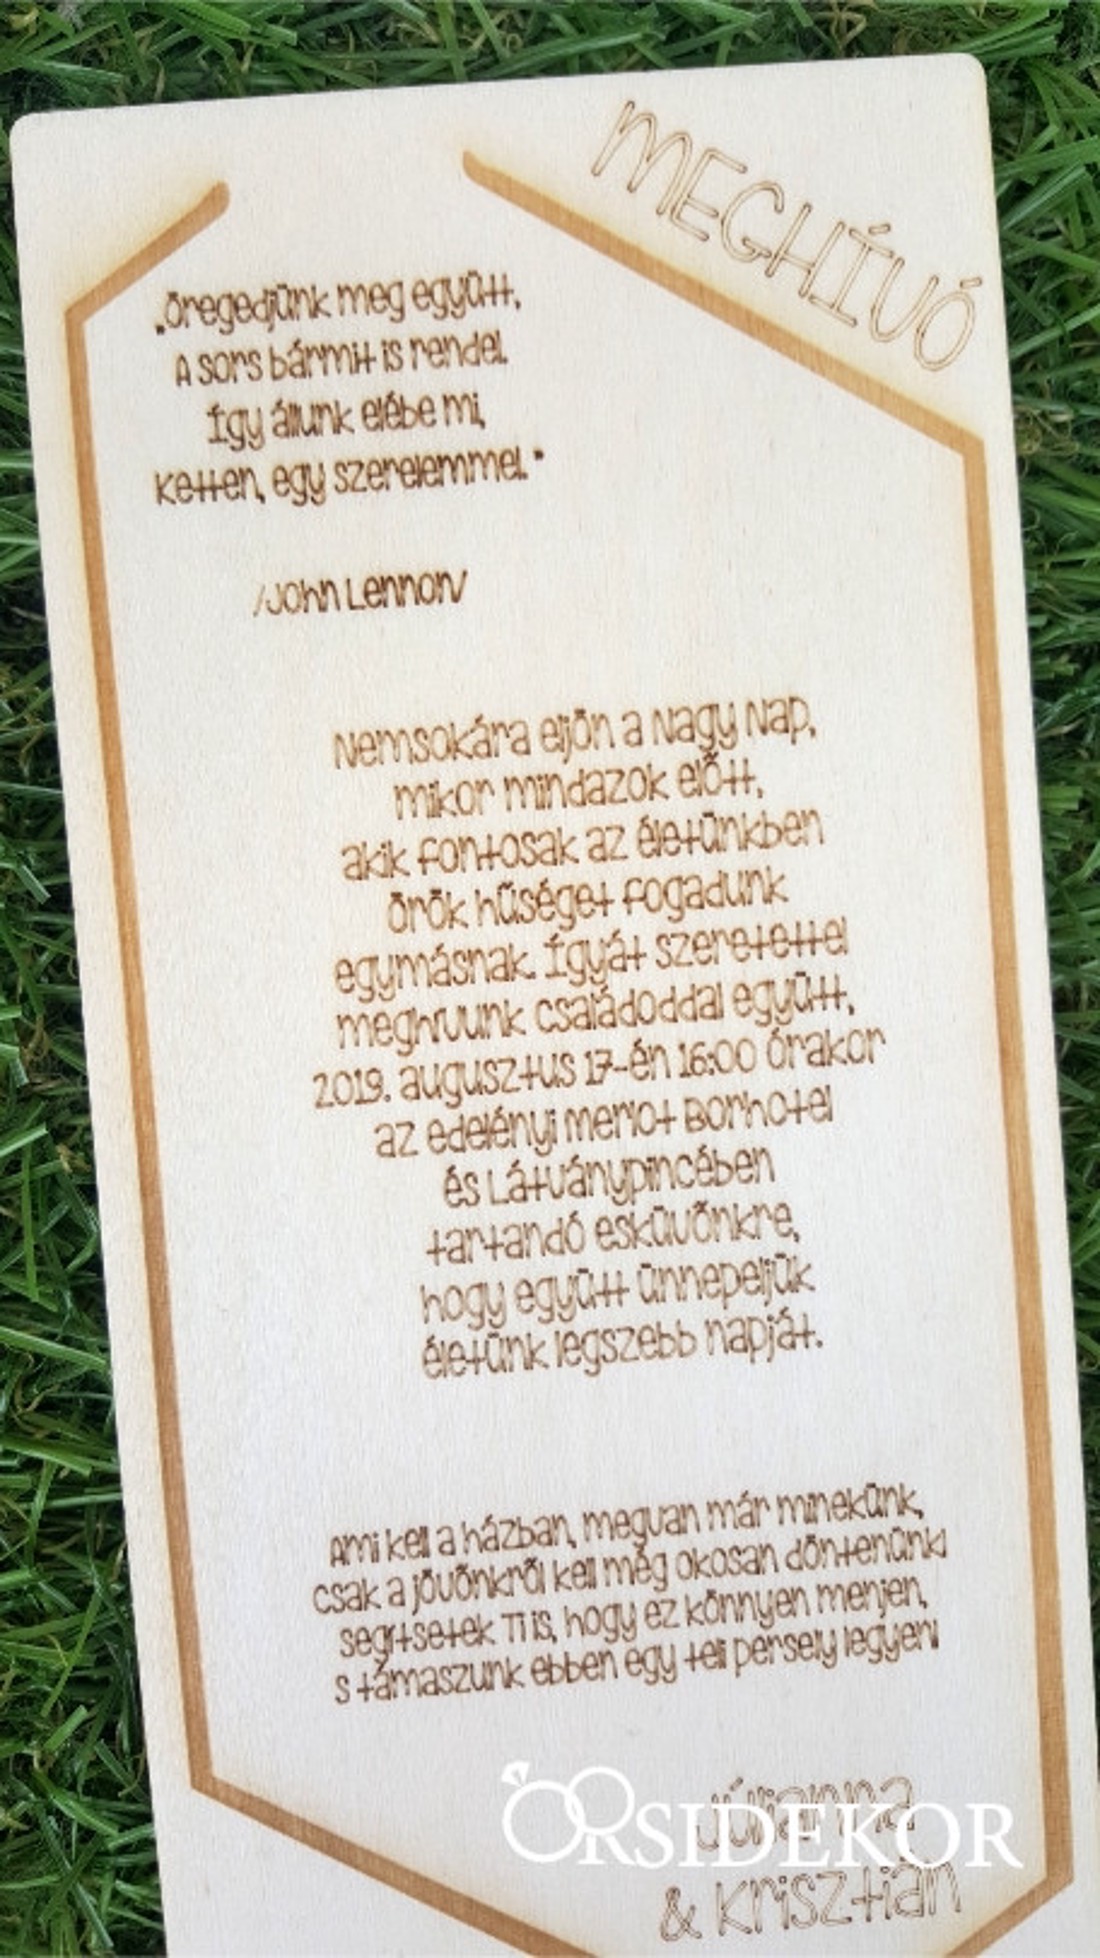 MEGHÍVÓ
„Öregedjünk meg együtt,
A sors bármit is rendel.
Így állunk elébe mi,
Ketten, egy szerelemmel."
/John Lennon/
Nemsokára eljön a Nagy Nap,
mikor mindazok előtt,
akik fontosak az életünkben
örök hűséget fogadunk
egymásnak. Ígyát szeretettel
meghívunk családoddal együtt,
2019. augusztus 17-én 16:00 órakor
az edelényi Merlot Borhotel
és Látványpincében
tartandó esküvőnkre,
hogy együtt ünnepeljük
életünk legszebb napját.
Ami kell a házban, megvan már minekünk,
csak a jövőnkről kell még okosan döntenünk!
Segítsetek Ti is, hogy ez könnyen menjen,
s támaszunk ebben egy teli persely legyen!
Júlianna
& Krisztián
ORSIDEKOR